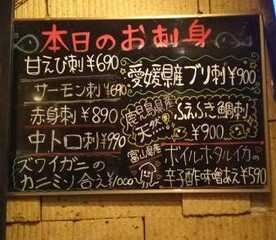 本日のお刺身
甘えび刺¥690
サーモン刺¥690
赤身刺¥890
中トロ刺¥990
ズワイガニの
カニミソ合え¥1000
愛媛県産ブリ刺¥900
鹿児島県産
天然
ふえふき鯛刺
¥900
富山県産
ボイルホタルイカの
辛子酢味噌あえ¥590